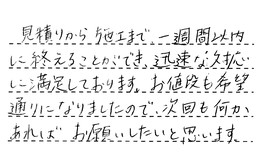 見積りから施工まで、一週間以内
に終えることができ、迅速な対応
に満足しております。お値段も希望
通りになりましたので、次回も何か
あれば お願いしたいと思います。